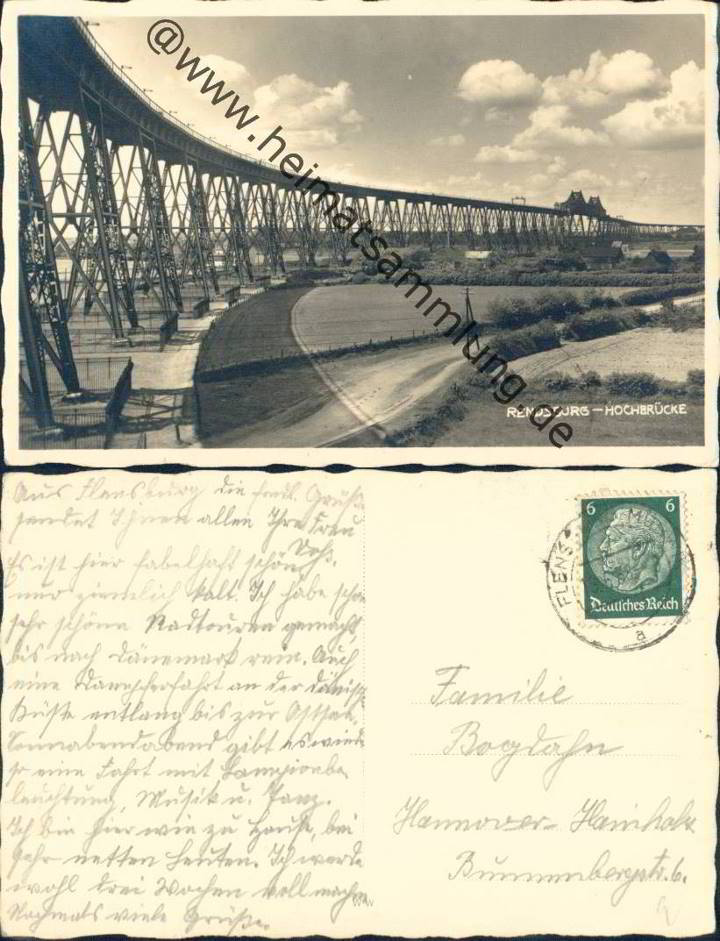 @www.heimatsammlung.de
RENDSBURG – HOCHBRÜCKE
Aus Flensburg die frdl. Grüße
sendet Ihnen allen Ihre Frau
Es ist hier fabelhaft schön,
nur ziemlich kalt. Ich habe schon
sehr schöne Radtouren gemacht,
bis nach Dänemark rein. Auch
eine Dampferfahrt an der dänisch
Küste entlang bis zur Ostsee.
Sonnabendabend gibt es wieder
so eine Fahrt mit Lampionbe
leuchtung, Musik u. Tanz.
Ich bin hier wie zu Hause, bei
sehr netten Leuten. Ich werde
wohl drei Wochen voll machen
Nochmals viele Grüße.
6 6
Deutsches Reich
FLENS
a
Familie
Bogdahn
Hannover-Hainholz
Bummbergstr. 6.